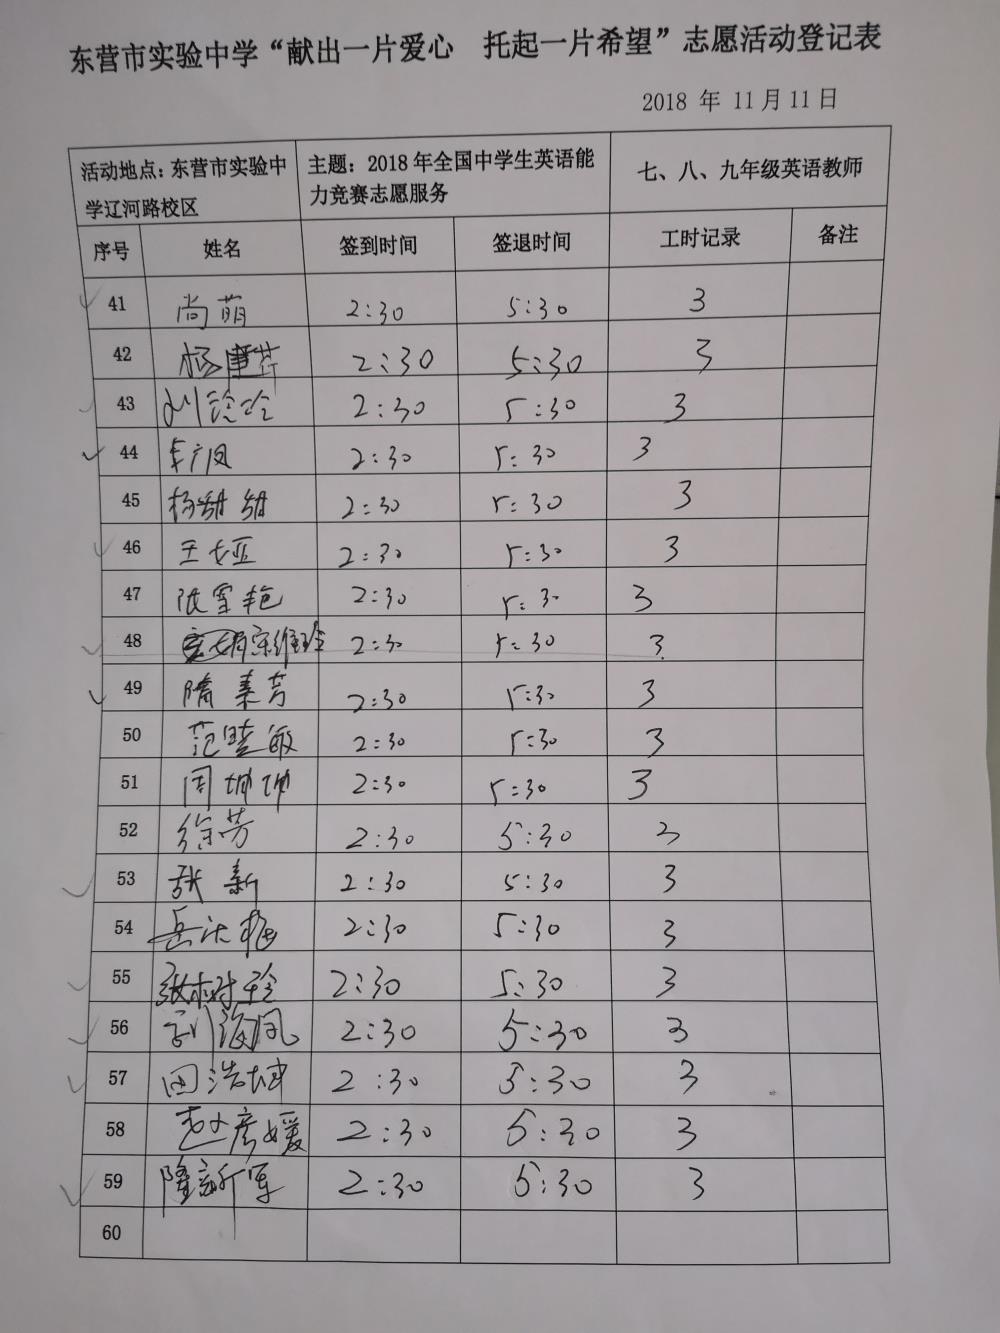 东营市实验中学“献出一片爱心 托起一片希望”志愿活动登记表
2018 年 11月11日
活动地点：东营市实验中学辽河路校区 主题：2018年全国中学生英语能力竞赛志愿服务 七、八、九年级英语教师
序号 姓名 签到时间 签退时间 工时记录 备注
41 尚萌 2:30 5:30 3
42 杨 2:30 5:30 3
43 刘玲玲 2:30 5:30 3
44 车广凤 2:30 5:30 3
45 杨甜甜 2:30 5:30 3
46 王亚 2:30 5:30 3
47 张雪艳 2:30 5:30 3
48 宗维玲 2:30 5:30 3
49 隋素芳 2:30 5:30 3
50 范晓敏 2:30 5:30 3
51 周坤坤 2:30 5:30 3
52 徐芳 2:30 5:30 3
53 张新 2:30 5:30 3
54 岳 梅 2:30 5:30 3
55 张树玲 2:30 5:30 3
56 海凤 2:30 5:30 3
57 田浩坤 2:30 5:30 3
58 赵彦媛 2:30 5:30 3
59 隆新军 2:30 5:30 3
60